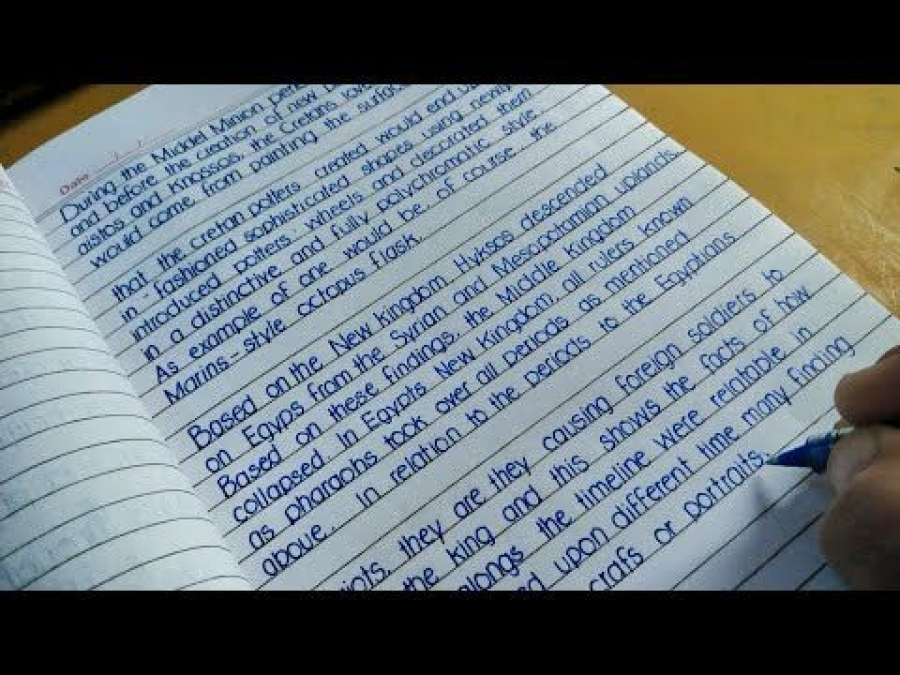 Date
During the Middel Minion
and before the creation of new
aistos and Knossos, the Cretans
would come from painting the
that the cretan potters created would end
in - fashioned sophisticated shapes using newly
introduced potters wheels and decorated them
in a distinctive and fully polychromatic style.
As example of one would be, of course, the
Marins - style octopus flask.
Based on the New Kingdom Hyksos descended
on Egyps from the Syrian and Mesopotamian uplands.
Based on these findings, the Middle Kingdom
collapsed. In Egypts New Kingdom, all rulers known
as pharaohs took over all periods as mentioned
above. In relation to the periods to the Egyptians
they are they causing foreign soldiers to
the king and this shows the facts of how
alongs the timeline were relatable in
upon different time many finding
crafs or portraits.